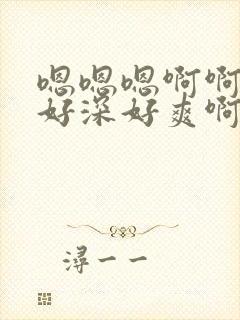 嗯嗯嗯啊啊
好深好爽啊
浔一一